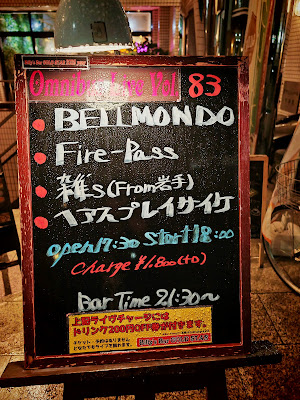 Omnibus Live Vol. 83
BELLMONDO
Fire-Pass
ざつ
雑s(From岩手)
ヘアスプレイサイケ
open17:30 Start18:00
Charge ¥1.800(+D)
Bar Time 21:30~
上記ライヴチャージには
ドリンク200円OFF券が付きます。